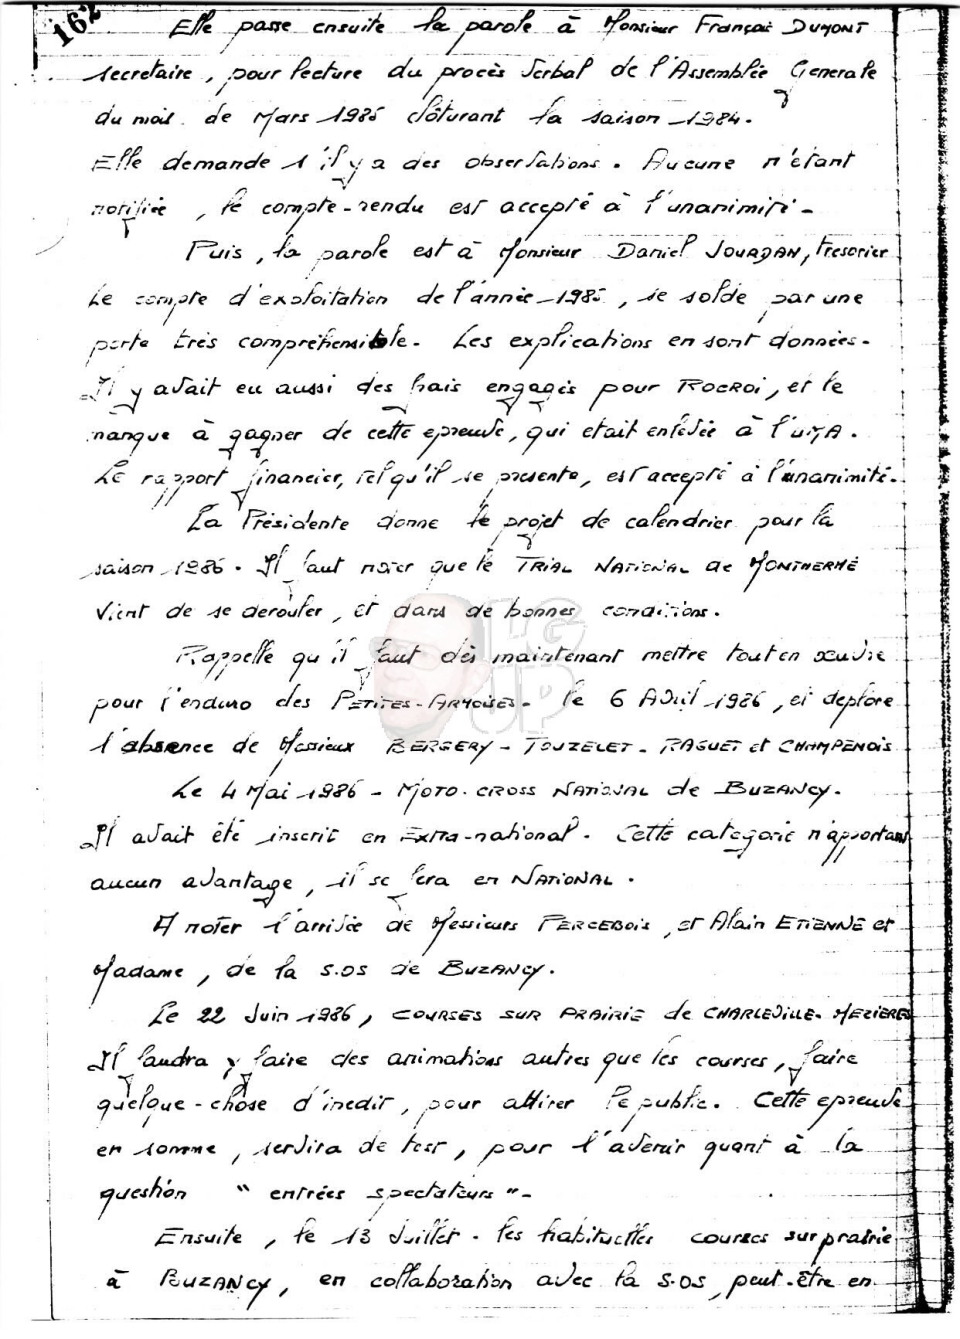 162
Elle passe ensuite la parole à Monsieur François DUMONT
secretaire, pour lecture du procès verbal de l'Assemblée Generale
du mois de Mars 1985 clôturant la saison 1984.
Elle demande s'il y a des observations. Aucune n'étant
notifiée, le compte-rendu est accepté à l'unanimité.
Puis, la parole est à Monsieur Daniel JOURDAN, tresorier
Le compte d'exploitation de l'année 1985, se solde par une
perte très compréhensible. Les explications en sont données.
Il y avait eu aussi des frais engagés pour ROCROI, et le
manque à gagner de cette epreuve, qui etait enlevée à l'UMA.
Le rapport financier, tel qu'il se presente, est accepté à l'unanimité.
La Présidente donne le projet de calendrier pour la
saison 1986. Il faut noter que le TRIAL NATIONAL de MONTHERMÉ
vient de se derouler, et dans de bonnes conditions.
Rappelle qu'il faut dès maintenant mettre tout en œuvre
pour l'enduro des PETITES-ARMOISES. le 6 Avril 1986, et deplore
l'absence de Messieux BERGERY - TOUZELET - RAGUET et CHAMPENOIS
Le 4 Mai 1986 - MOTO-CROSS NATIONAL de BUZANCY.
Il avait été inscrit en Extra-national. Cette categorie n'apportant
aucun avantage, il se fera en NATIONAL.
A noter l'arrivée de Messieurs PERCEBOIS, et Alain ETIENNE et
Madame, de la S.OS de BUZANCY.
Le 22 Juin 1986, COURSES SUR PRAIRIE de CHARLEVILLE-MEZIERES
Il faudra y faire des animations autres que les courses, faire
quelque-chose d'inedit, pour attirer le public. Cette epreuve
en somme, servira de test, pour l'avenir quant à la
question "entrées spectateurs".
Ensuite, le 13 Juillet - les habituelles courses sur prairie
à BUZANCY, en collaboration avec la S.OS, peut-être en
LG
UP